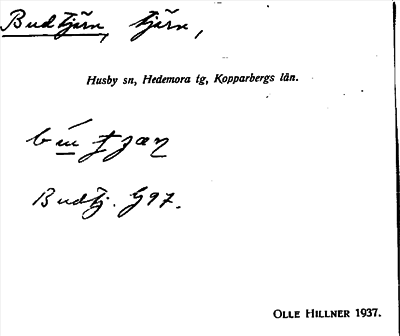 Budtjärn, tjärn,
Husby sn, Hedemora tg, Kopparbergs län.
Budtj. G97.
OLLE HILLNER 1937.